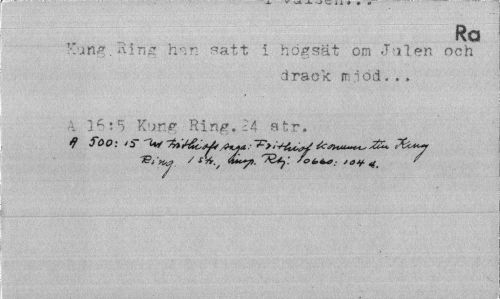 i valsen...
Ra
Kung Ring han satt i högsät om Julen och
drack mjöd...
A 16:5 Kung Ring. 24 str.
A 500:15 ur Frithiofs saga: Frithiof kommer till Kung
Ring 1 str., insp. Rbj. 10660:104 a.